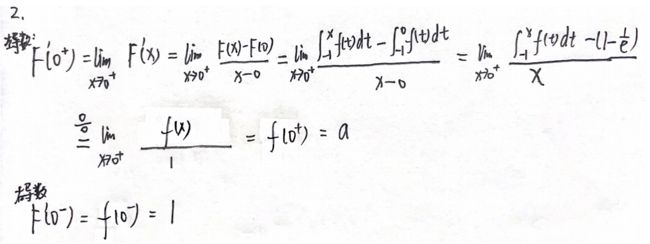 2.
导数:F'(0⁺)=lim_{x→0⁺} F'(x)=lim_{x→0⁺} (F(x)-F(0))/(x-0)=lim_{x→0⁺} (∫_{-1}^{x}f(t)dt-∫_{-1}^{0}f(t)dt)/(x-0)=lim_{x→0⁺} (∫_{-1}^{x}f(t)dt-(1-1/e))/x
0/0 = lim_{x→0⁺} f(x)/1 = f(0⁺) = a
导数
F'(0⁻)=f(0⁻)=1